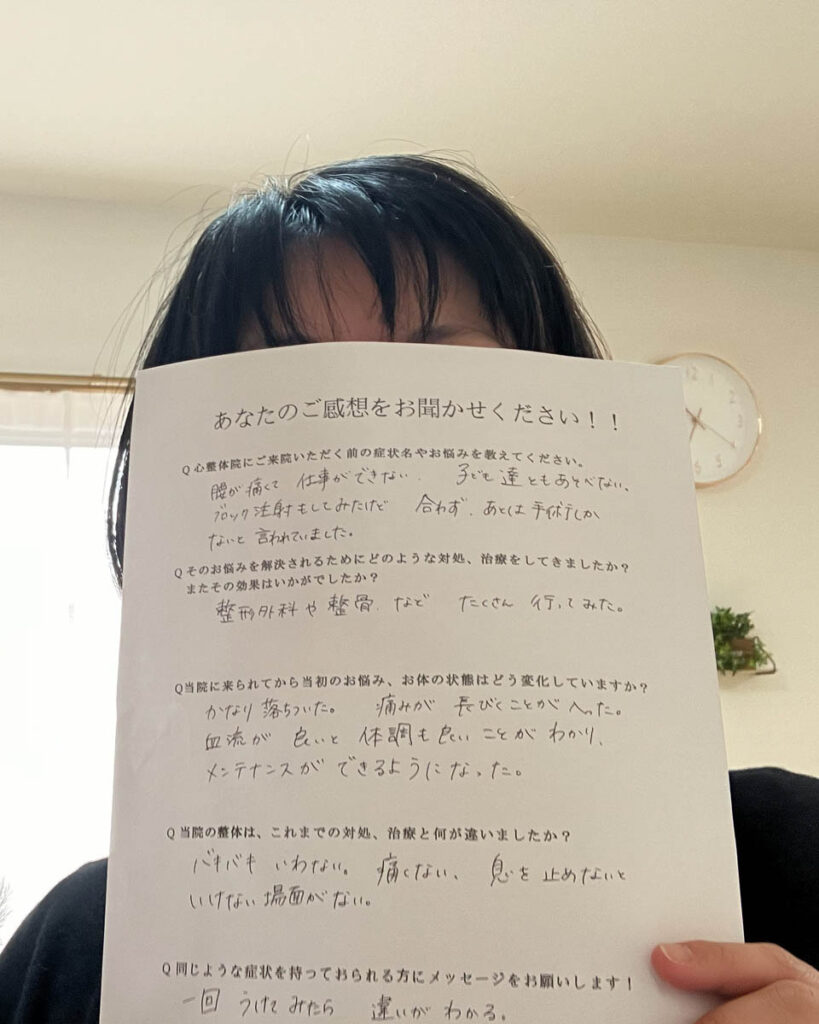 あなたのご感想をお聞かせください！！
Q 心整体院にご来院いただく前の症状名やお悩みを教えてください。
腰が痛くて 仕事ができない。 子ども達ともあそべない、
ブロック注射もしてみたけど 合わず、あとは手術しか
ないと言われていました。
Q そのお悩みを解決されるためにどのような対処、治療をしてきましたか？
またその効果はいかがでしたか？
整形外科や整骨、など たくさん 行ってみた。
Q 当院に来られてから当初のお悩み、お体の状態はどう変化していますか？
かなり落ちついた。 痛みが 長びくことが 入った。
血流が 良いと 体調も良い ことが わかり、
メンテナンスが できるようになった。
Q 当院の整体は、これまでの対処、治療と何が違いましたか？
バキバキ いわない。 痛くない、 息を 止めないと
いけない場面がない。
Q 同じような症状を持っておられる方にメッセージをお願いします！
一回 うけてみたら 違いが わかる。